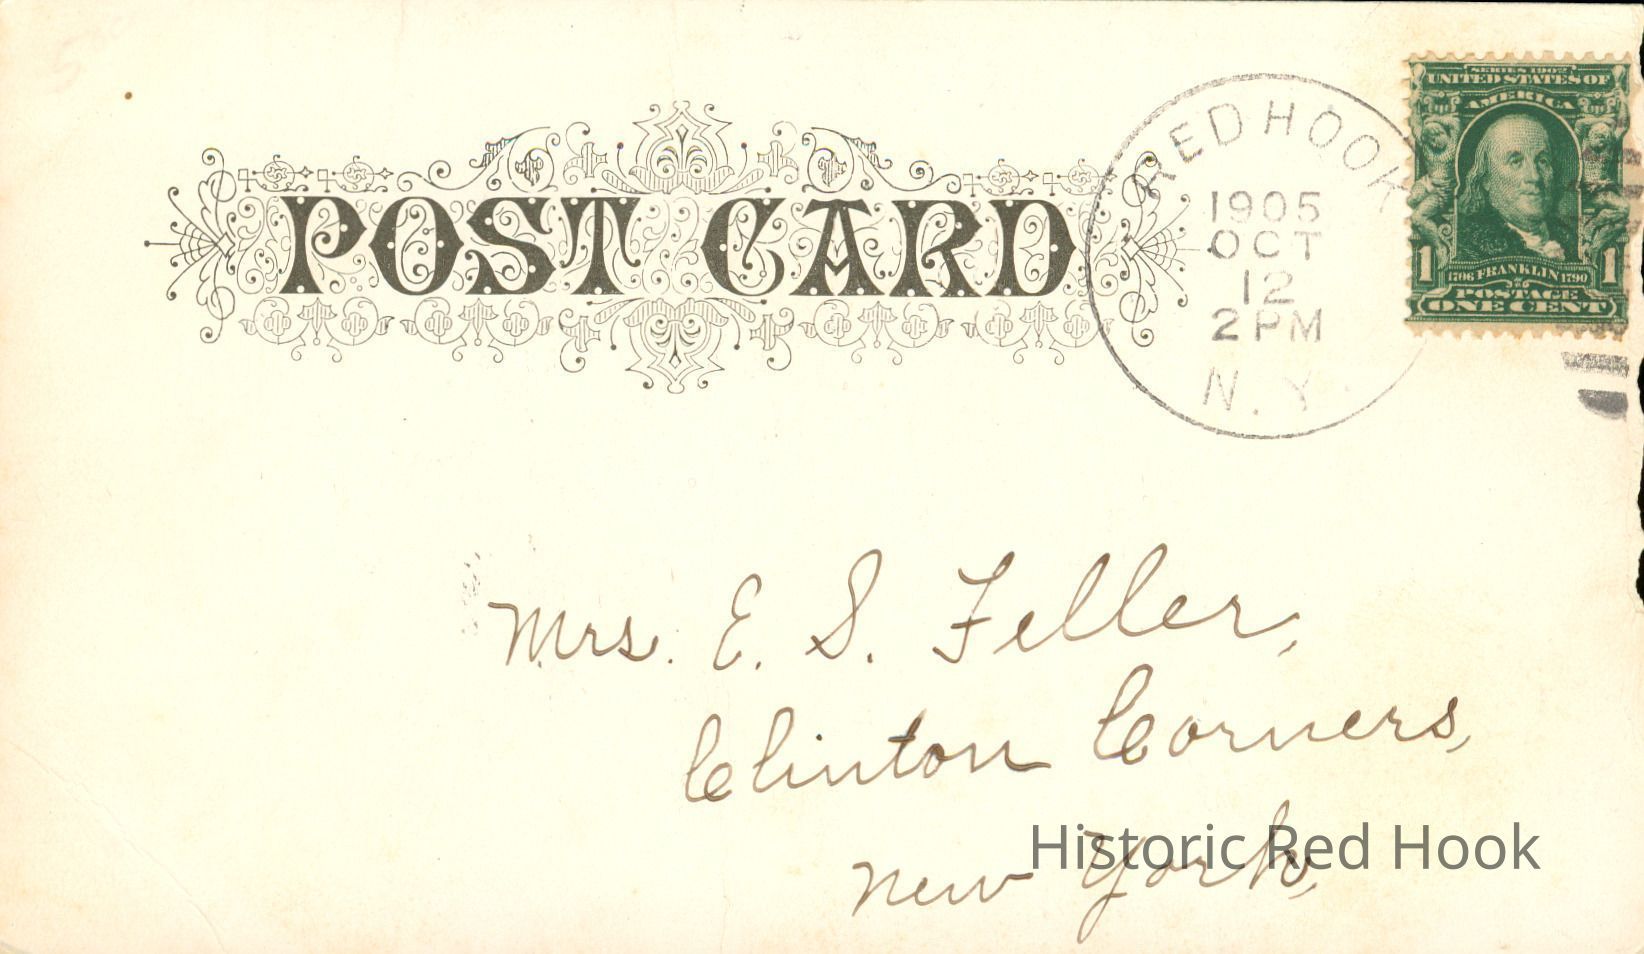 5
POST CARD
RED HOOK
1905
OCT
12
2 PM
N.Y.
SERIES 1902
UNITED STATES OF
AMERICA
1 1706 FRANKLIN 1790 1
POSTAGE
ONE CENT
Mrs. E. S. Feller,
Clinton Corners,
New York,
Historic Red Hook